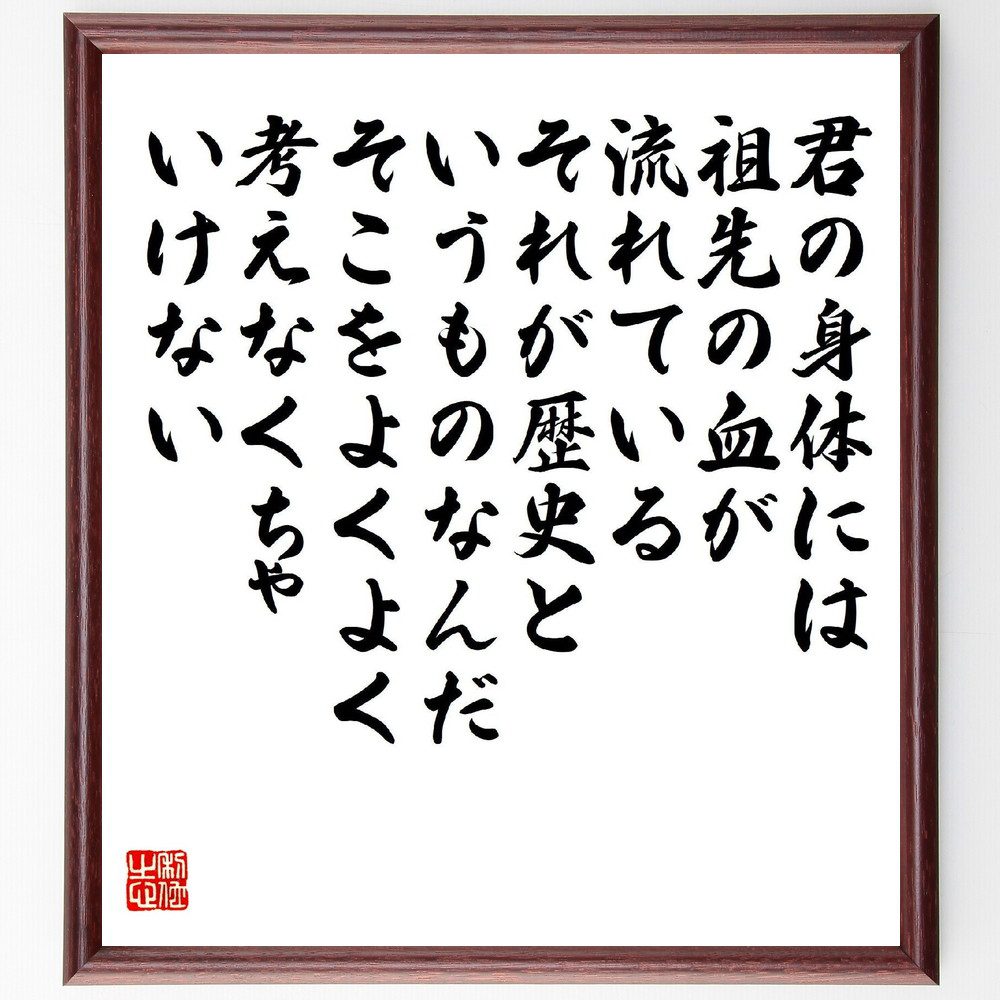 君の身体には
祖先の血が
流れている
それが歴史と
いうものなんだ
そこをよくよく
考えなくちゃ
いけない